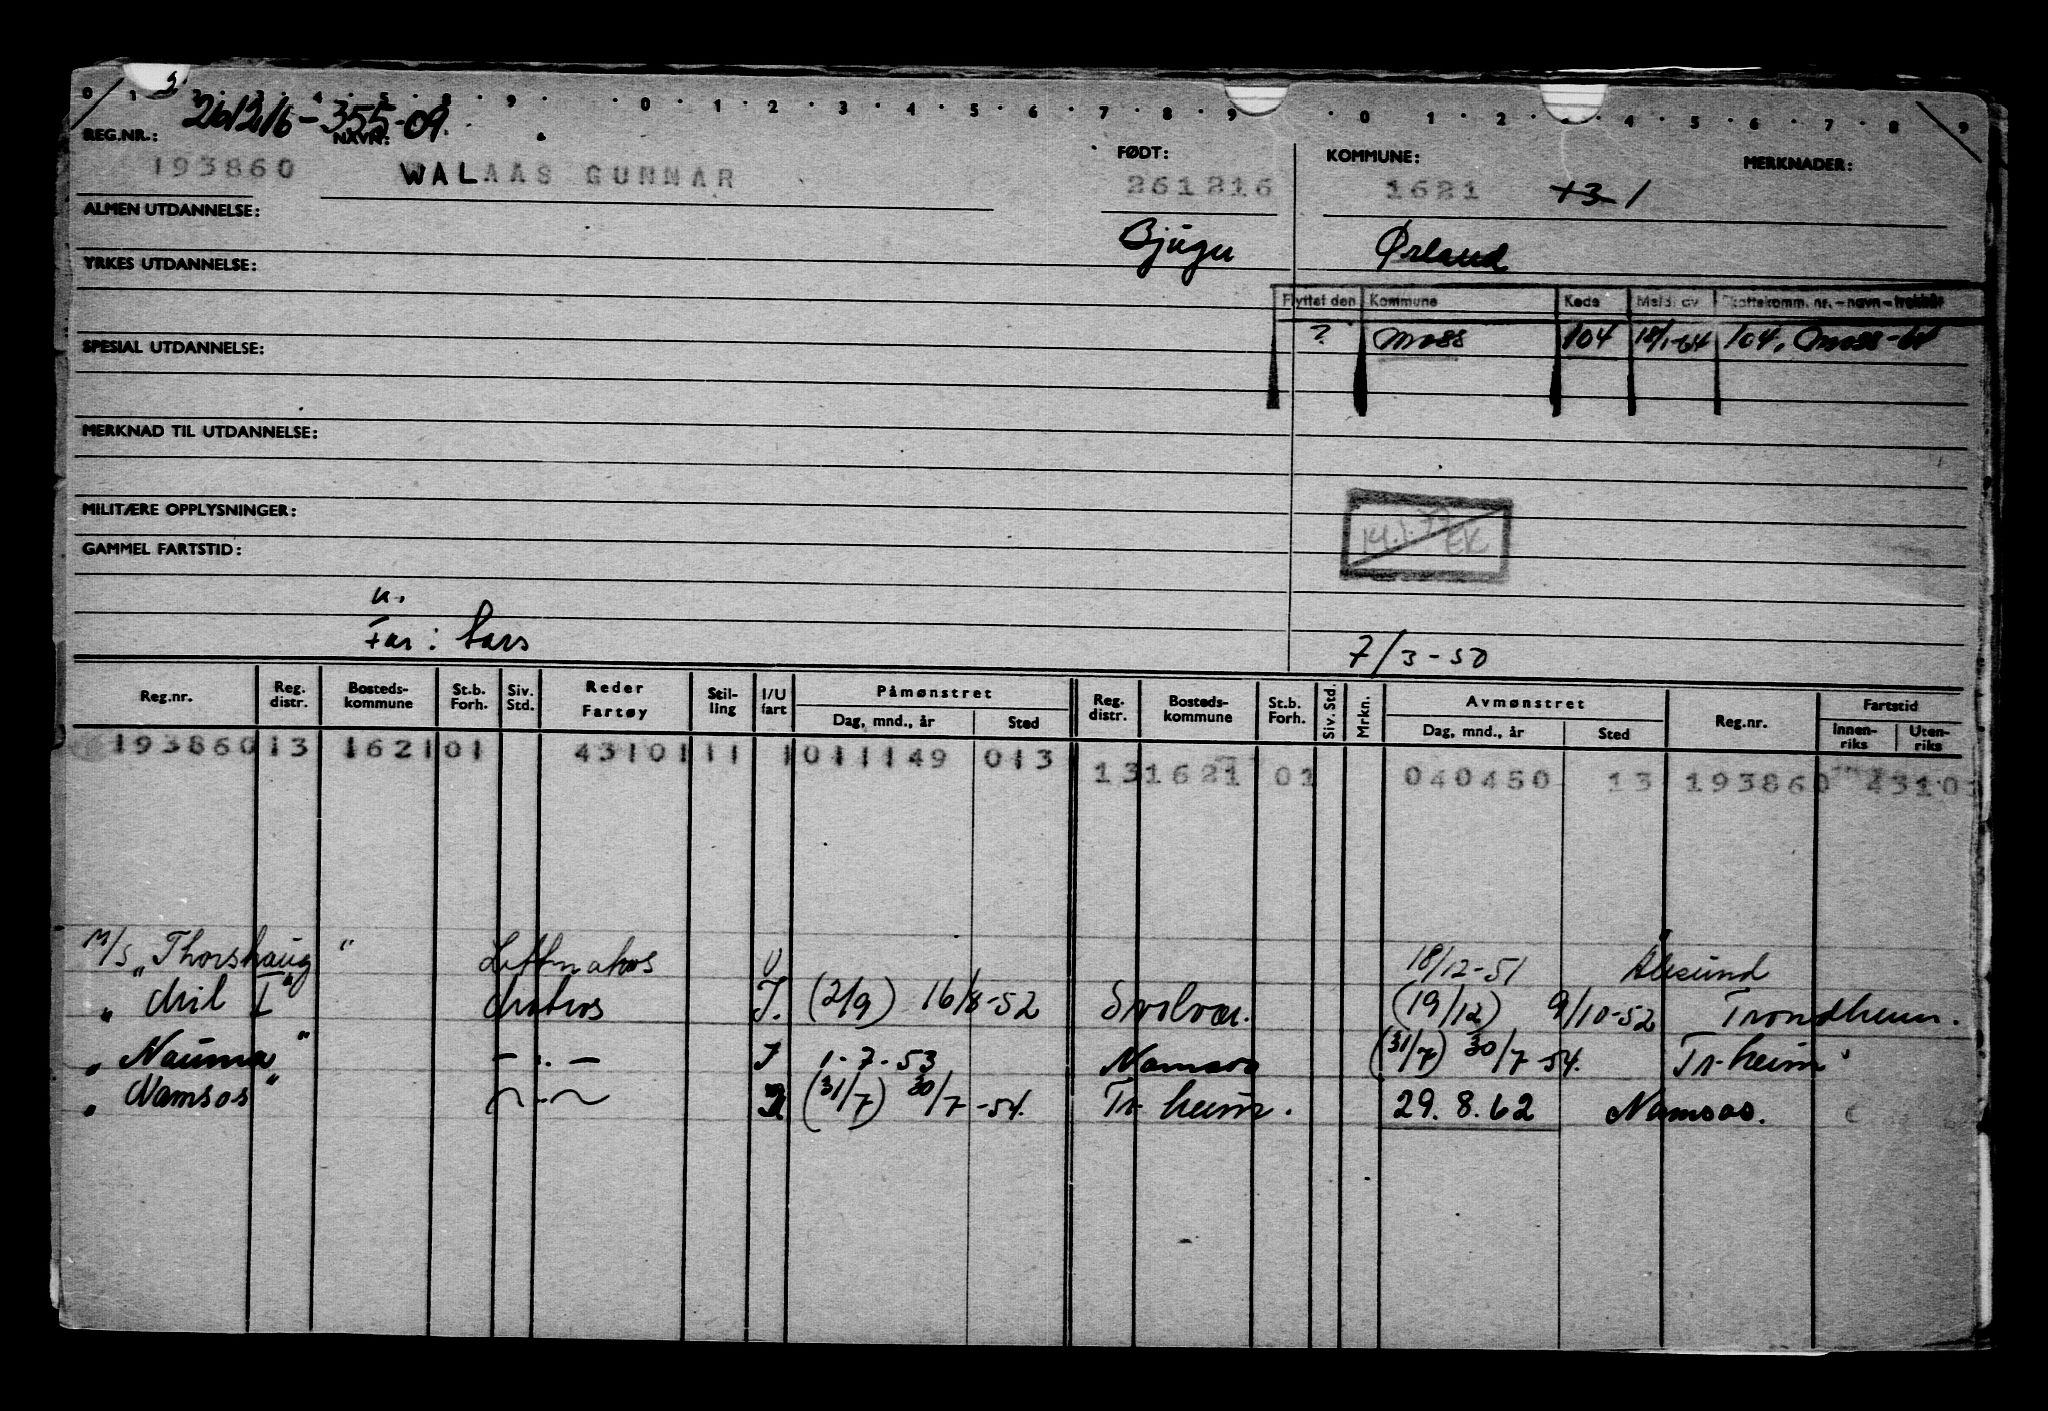 0 1 2 3 4 5 6 7 8 9 0 1 2 3 4 5 6 7 8 9 0 1 2 3 4 5 6 7 8 9
261216-355-09.
REG.NR.: NAVN: FØDT: KOMMUNE: MERKNADER:
193860 WALAAS GUNNAR 261216 1621 +3-1
ALMEN UTDANNELSE:
Bjugn Ørland
YRKES UTDANNELSE:
Flyttet den Kommune Kode Meld. av Skattekomm. nr. – navn – trekkår
? Moss 104 18/1-64 104, Moss-64
SPESIAL UTDANNELSE:
MERKNAD TIL UTDANNELSE:
MILITÆRE OPPLYSNINGER:
EK
GAMMEL FARTSTID:
u.
Far: Lars 7/3-50
Reg.nr. Reg. distr. Bosteds-kommune St.b. Forh. Siv. Std. Reder Fartøy Stil-ling I/U fart Påmønstret Dag, mnd., år Sted Reg. distr. Bosteds-kommune St.b. Forh. Siv. Std. Mrkn. Avmønstret Dag, mnd., år Sted Reg.nr. Fartstid Innen-riks Uten-riks
193860 13 1621 01 43101 11 1 011149 013 13 1621 01 040450 13 193860 43101
M/S "Thorshaug" " Lettmatros U 18/12-51 Ålesund
" Mil I" Matros I. (2/9) 16/8-52 Svolvær. (19/12) 9/10-52 Trondheim.
" Nauma" -"- I 1-7-53 Namsos (31/7) 30/7-54. Tr-heim
" Namsos" -"- I (31/7) 30/7-54. Tr-heim. 29.8.62 Namsos.